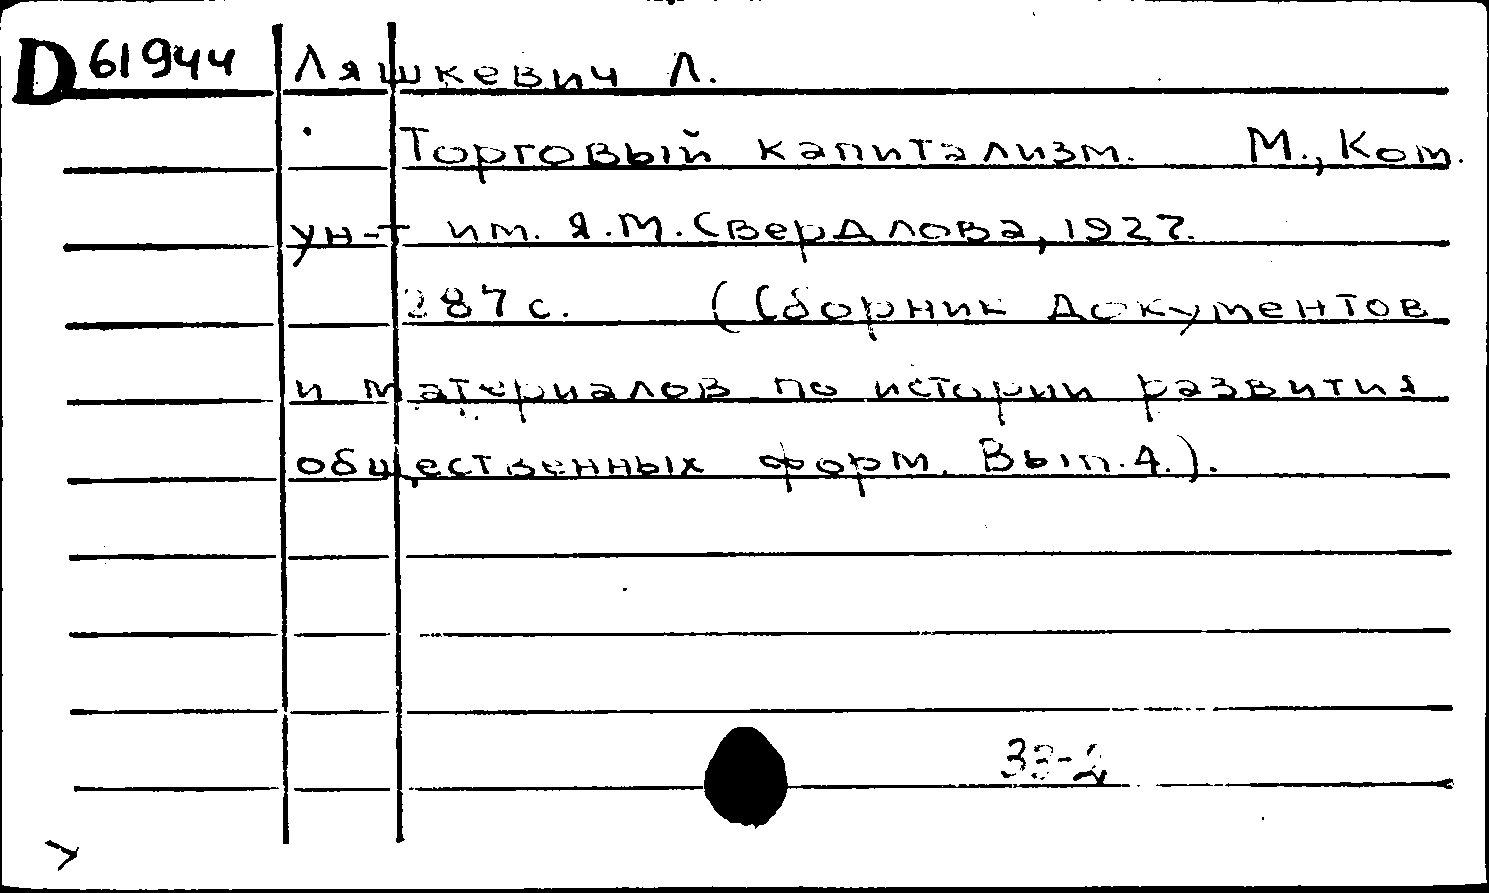 D 61944 Ляшкевич Л.
Торговый капитализм. М., Ком.
ун-т им. Я.М.Свердлова, 1927.
287 с. (Сборник документов
и материалов по истории развития
общественных форм. Вып.4.).
33-2